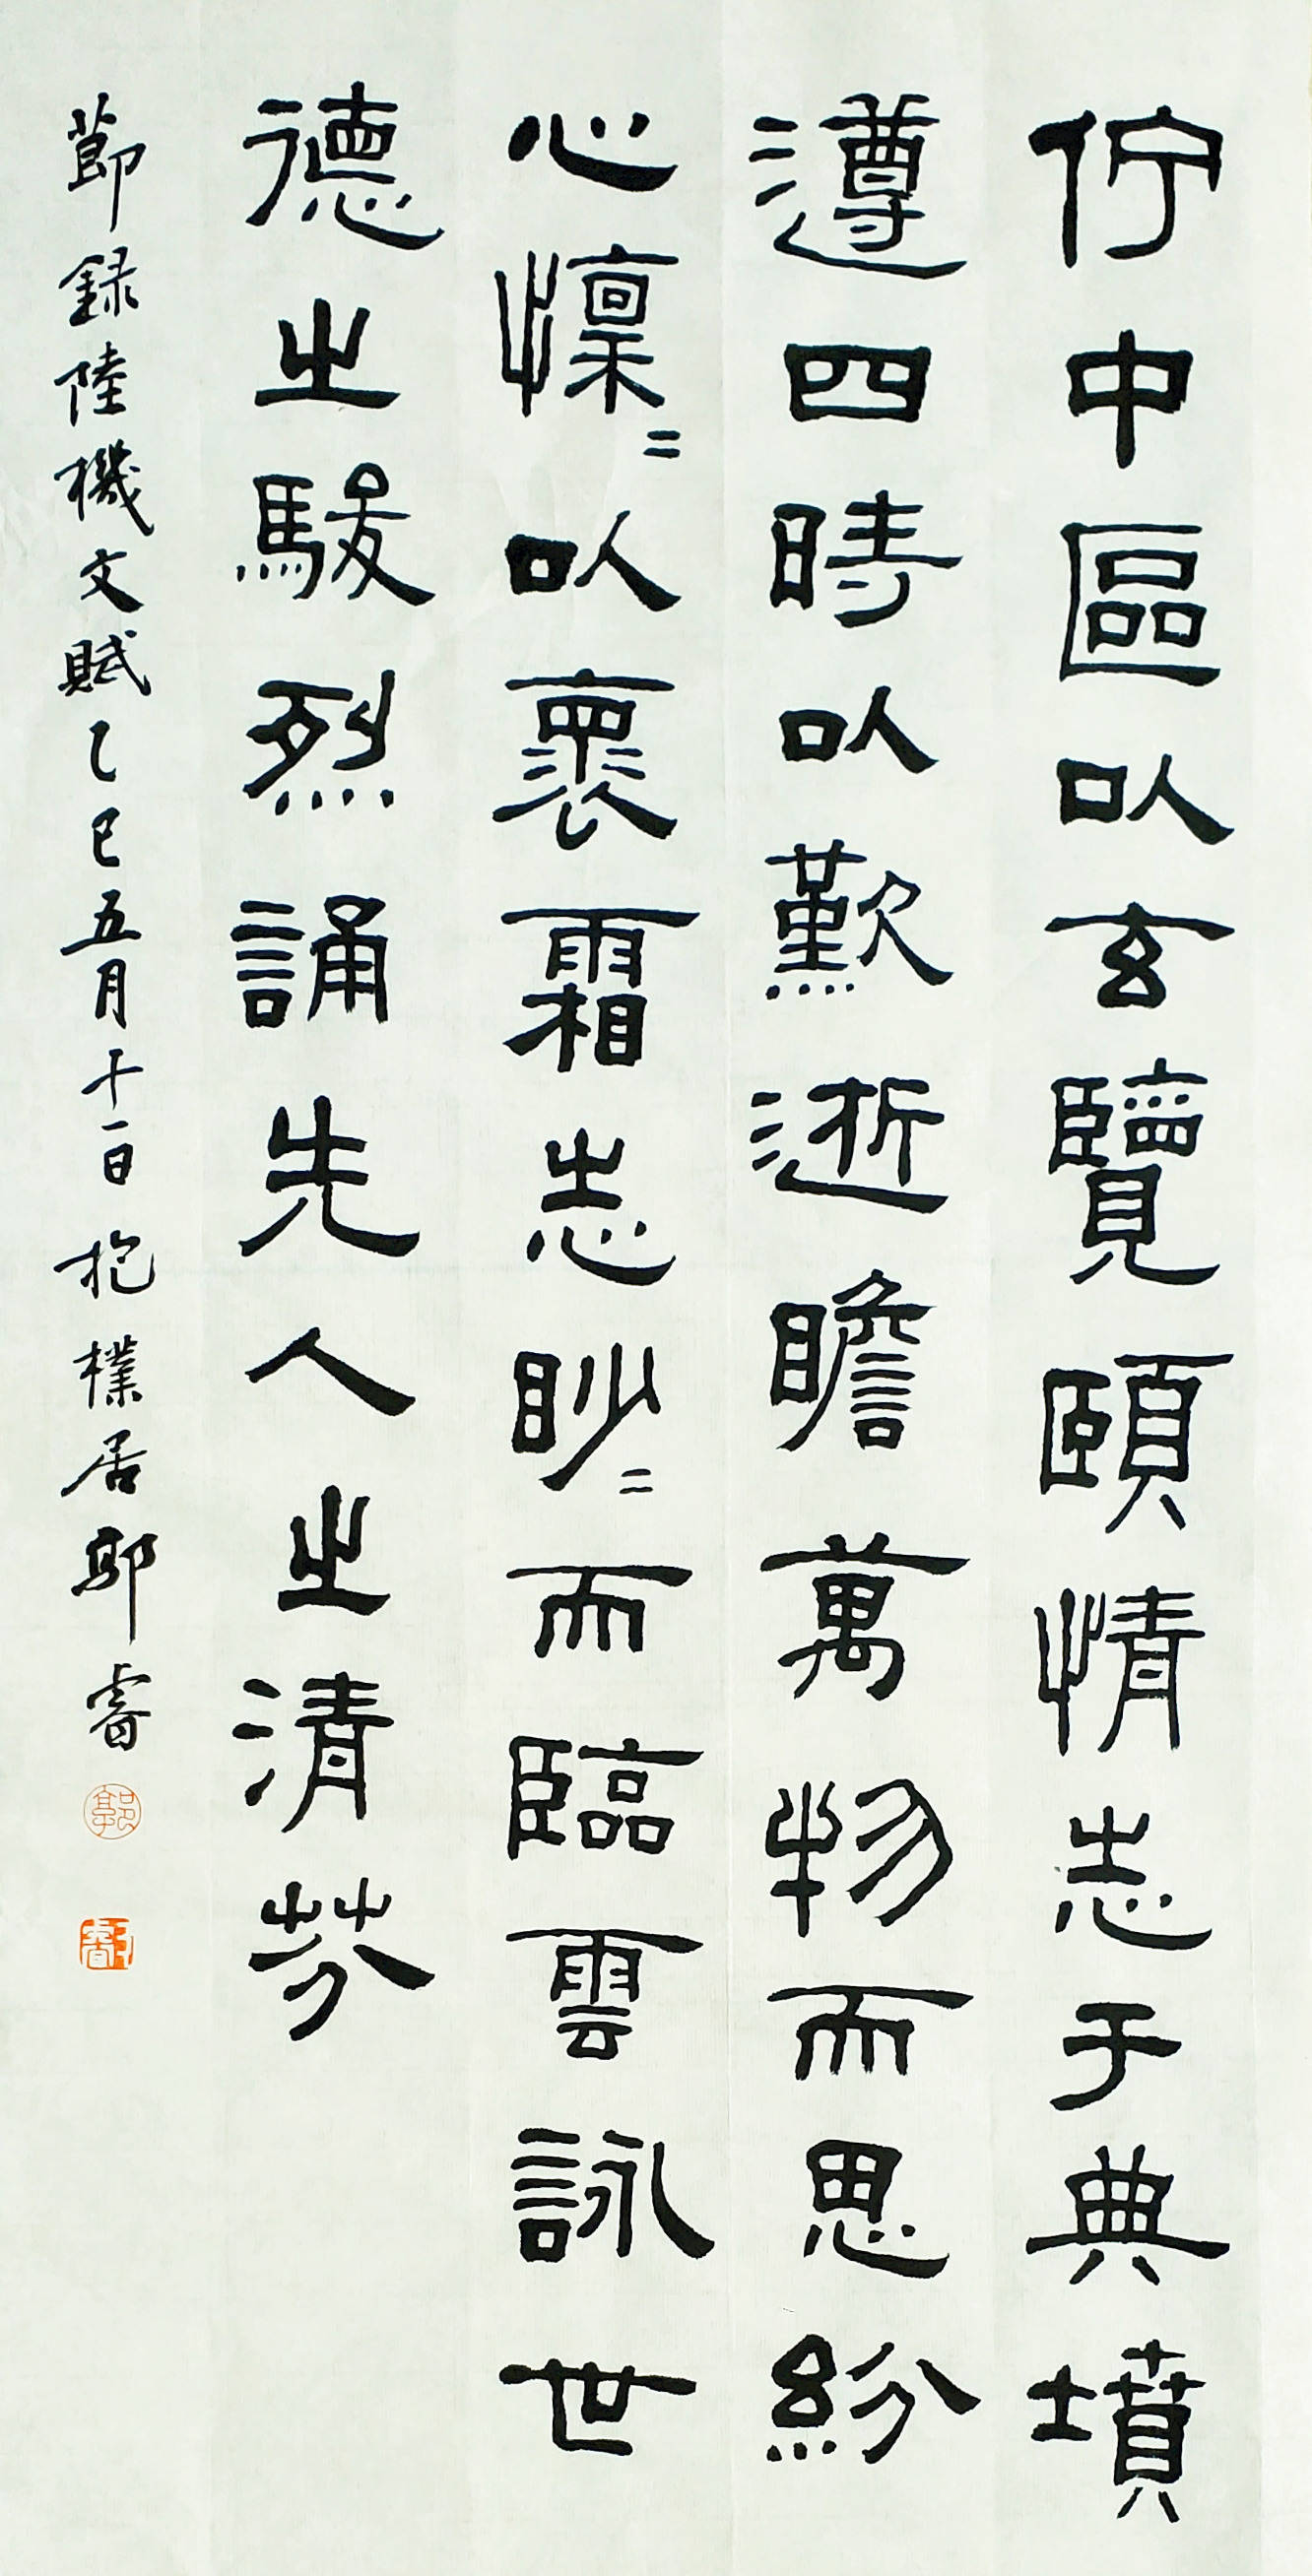 佇中區以玄覽頤情志于典墳
遵四時以歎逝瞻萬物而思紛
心懍〻以褱霜志眇〻而臨雲詠世
德之駿烈誦先人之清芬
節錄陸機文賦乙巳五月十一日抱樸居郭睿
郭
睿